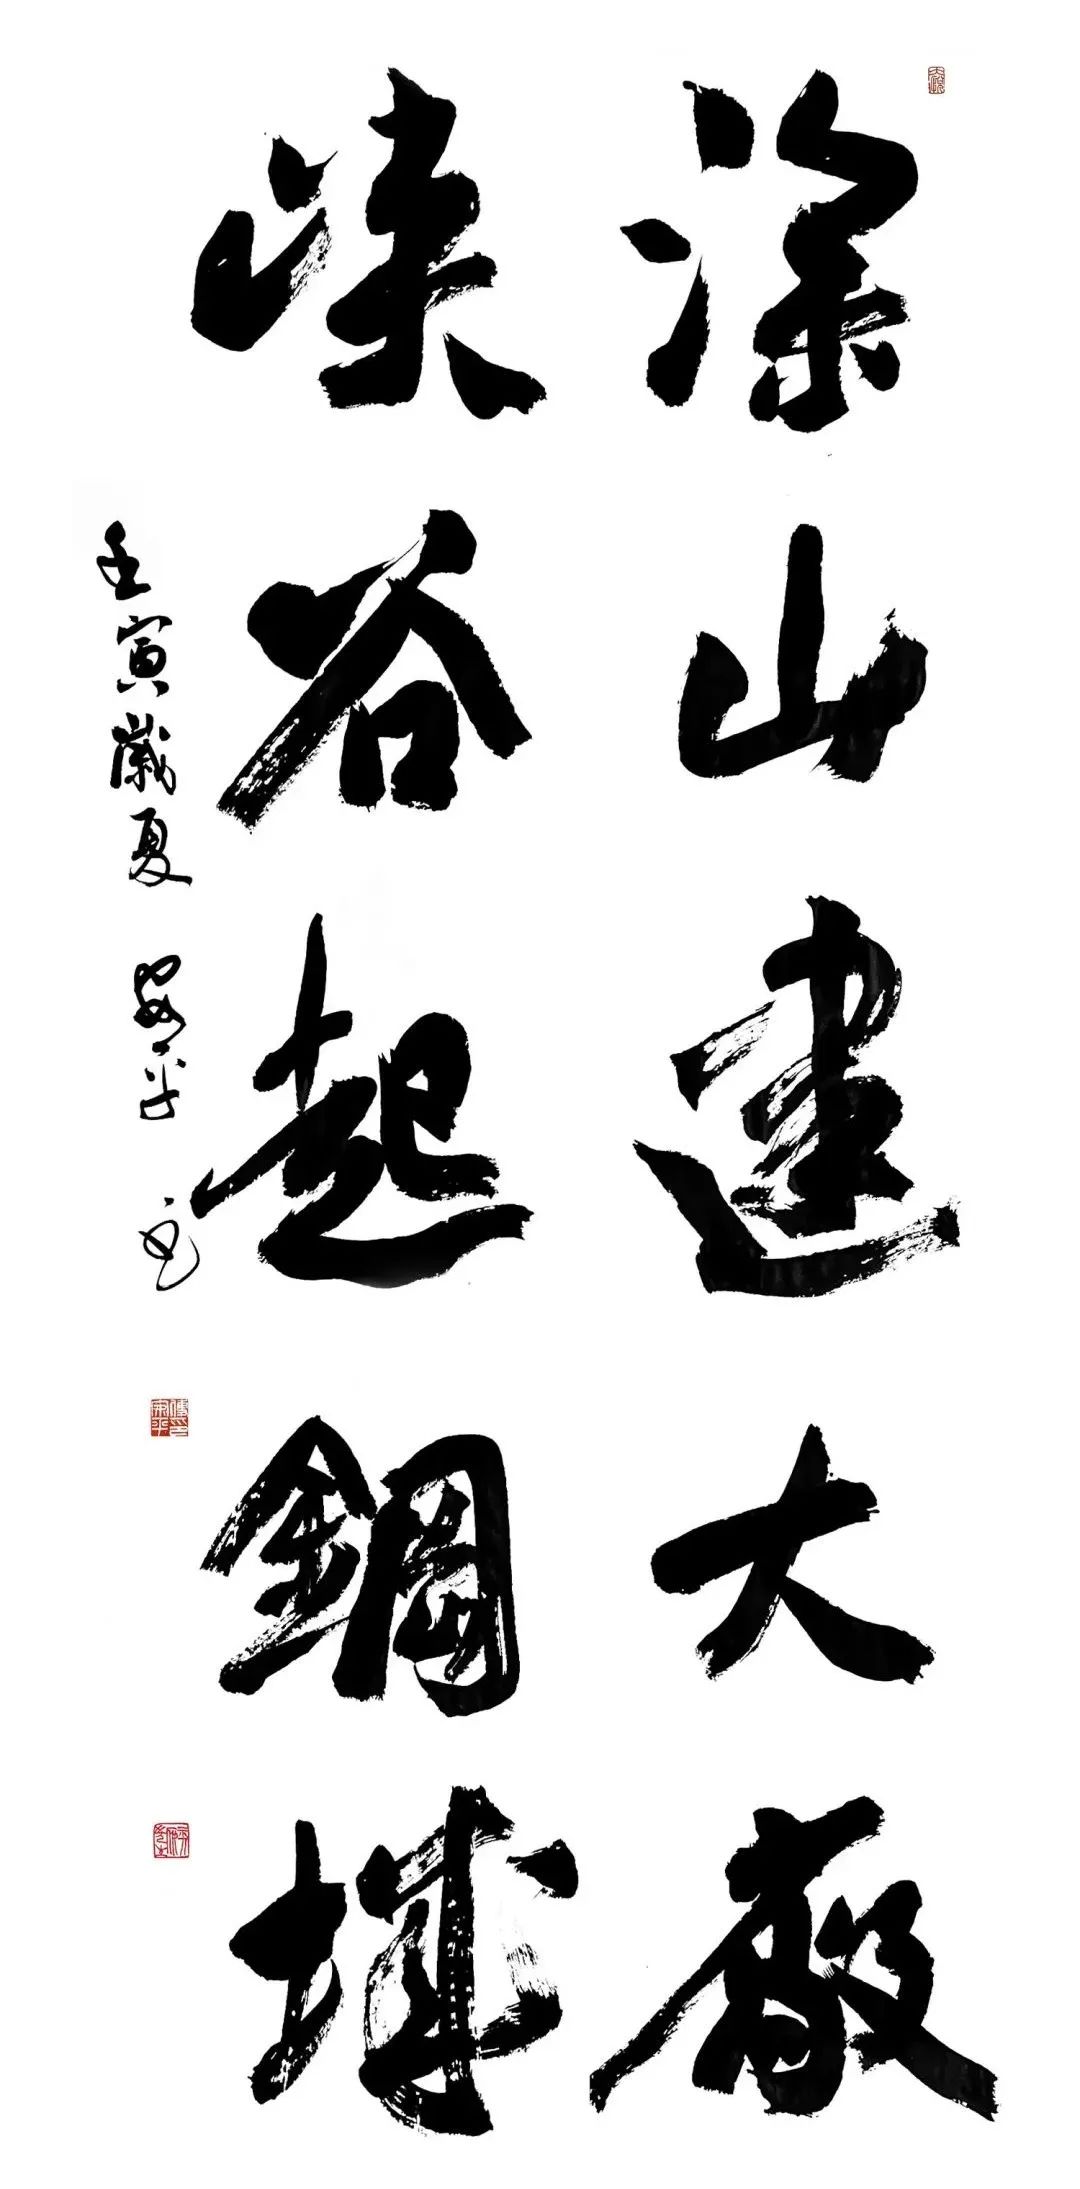 深山建大廠
峽谷起鋼城
壬寅歲夏 安平書